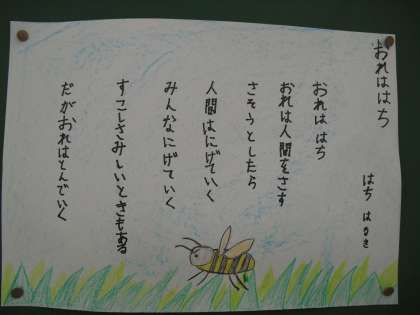 おれははち
はち はるき
おれは はち
おれは人間をさす
さそうとしたら
人間はにげていく
みんなにげていく
すこしさみしいときもある
だがおれはとんでいく